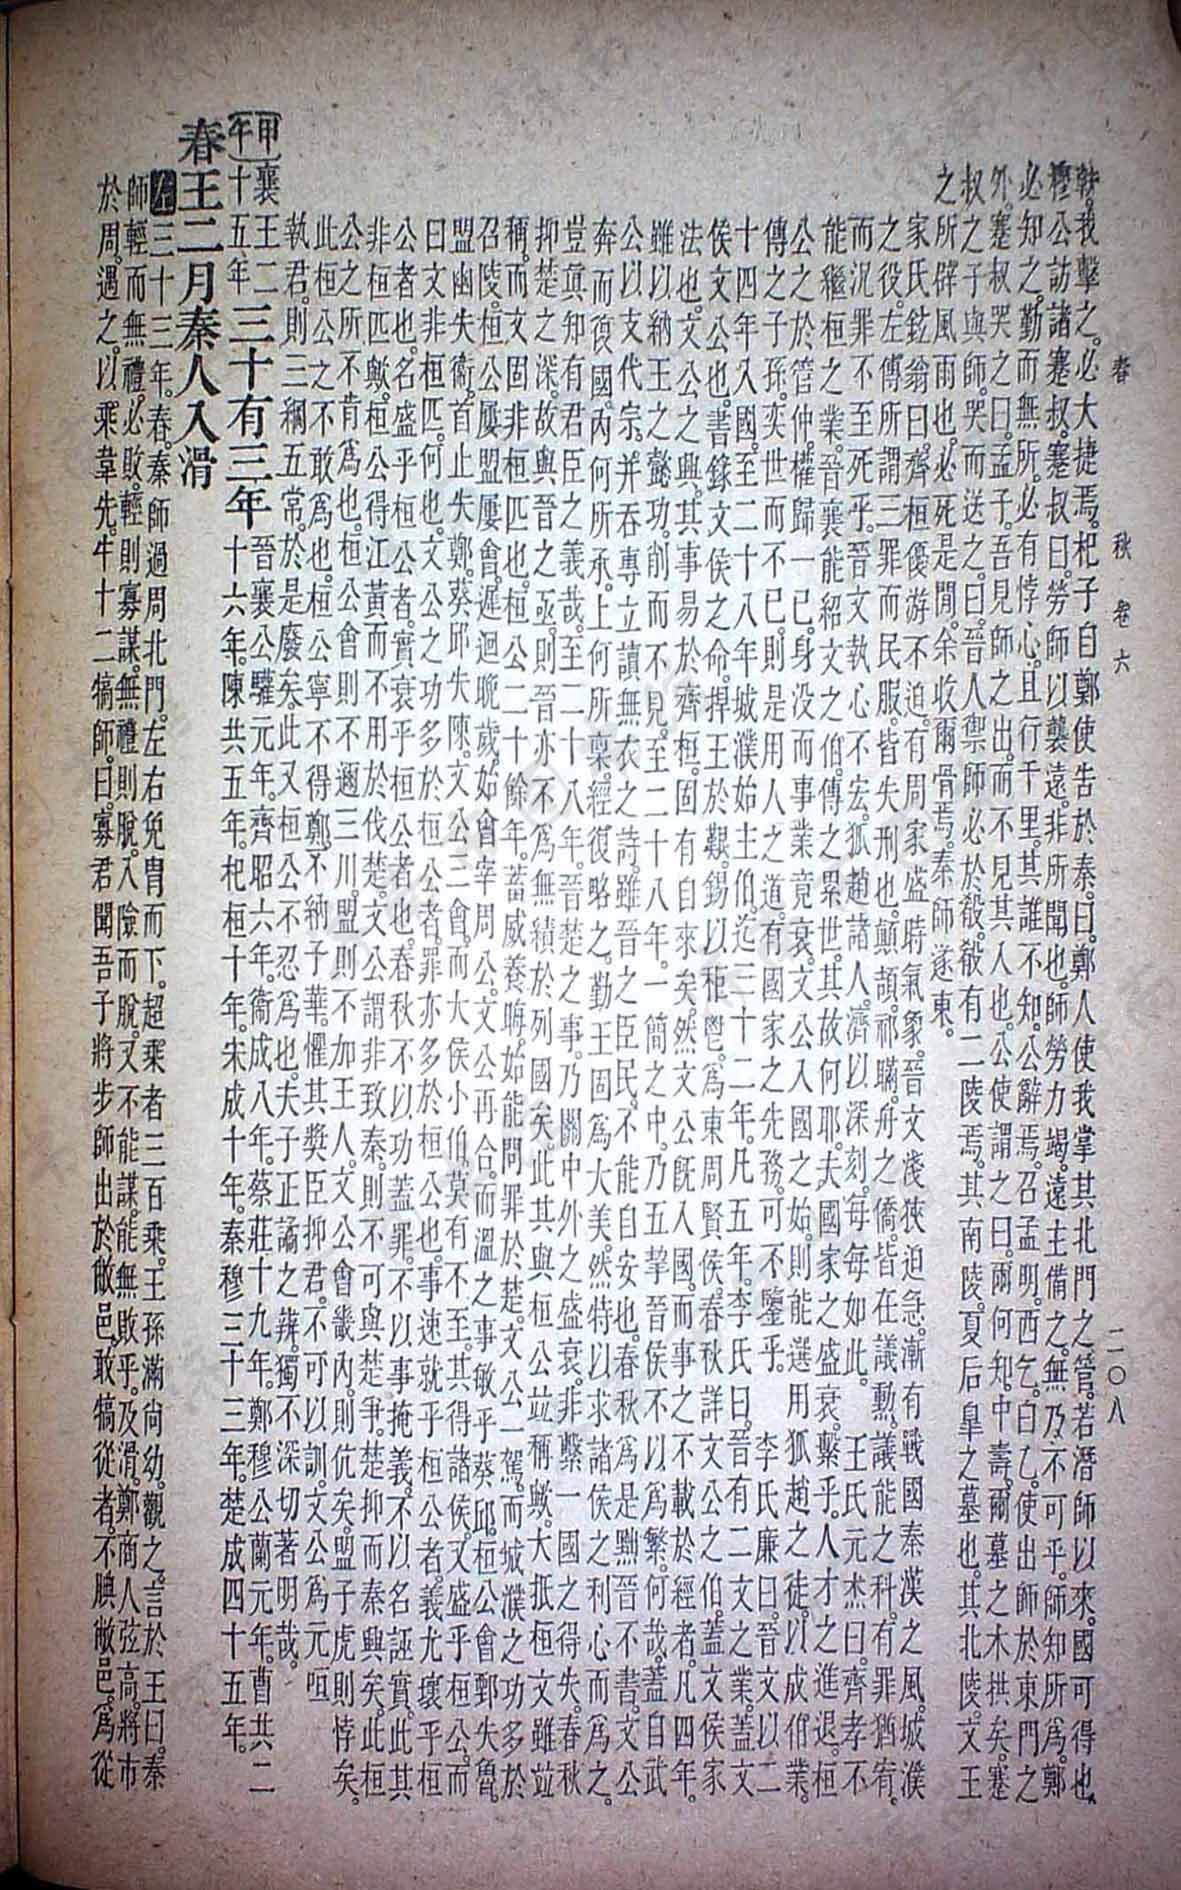 春秋 卷六 二〇八
執我擊之必大捷焉杞子自鄭使告於秦曰鄭人使我掌其北門之管若潛師以來國可得也
穆公訪諸蹇叔蹇叔曰勞師以襲遠非所聞也師勞力竭遠主備之無乃不可乎師知所為鄭
必知之勤而無所必有悖心且行千里其誰不知公辭焉召孟明西乞白乙使出師於東門之
外蹇叔哭之曰孟子吾見師之出而不見其人也公使謂之曰爾何知中壽爾墓之木拱矣蹇
叔之子與師哭而送之曰晉人禦師必於殽殽有二陵焉其南陵夏后皐之墓也其北陵文王
之所辟風雨也必死是閒余收爾骨焉秦師遂東
家氏鉉翁曰齊桓優游不迫有周家盛時氣象晉文淺狹迫急漸有戰國秦漢之風城濮
之役左傳所謂三罪而民服皆失刑也顛頡祁瞞舟之僑皆在議勳議能之科有罪猶宥
而況罪不至死乎晉文執心不宏狐趙諸人濟以深刻每每如此 王氏元杰曰齊孝不
能繼桓之業晉襄能紹文之伯傳之累世其故何耶夫國家之盛衰繫乎人才之進退桓
公之於管仲權歸一己身没而事業竟衰文公入國之始則能選用狐趙之徒以成伯業
傳之子孫奕世而不已則是用人之道有國家之先務可不鑒乎 李氏廉曰晉文以二
十四年入國至二十八年城濮始主伯迄三十二年凡五年李氏曰晉有二文之業蓋文
侯文公也書錄文侯之命捍王於艱錫以秬鬯為東周賢侯春秋詳文公之伯蓋文侯家
法也文公之興其事易於齊桓固有自來矣然文公旣入國而事之不載於經者凡四年
雖以納王之懿功削而不見至二十八年一簡之中乃五挈晉侯不以為繁何哉蓋自武
公以支代宗并吞專立讀無衣之詩雖晉之臣民不能自安也春秋為是黜晉不書文公
奔而復國內何所承上何所稟經復略之勤王固為大美然特以求諸侯之利心而為之
豈眞知有君臣之義哉至二十八年晉楚之事乃關中外之盛衰非繫一國之得失春秋
抑楚之深故與晉之亟則晉亦不為無績於列國矣此其與桓公竝稱歟大抵桓文雖竝
稱而文固非桓匹也桓公二十餘年蓄威養晦始能問罪於楚文公一駕而城濮之功多於
召陵桓公屢盟屢會遲迴晚歲始會宰周公文公再合而溫之事敏乎葵邱桓公會鄄失魯
盟幽失衞首止失鄭葵邱失陳文公三會而大侯小伯莫有不至其得諸侯又盛乎桓公而
曰文非桓匹何也文公之功多於桓公者罪亦多於桓公也事速就乎桓公者義尤壞乎桓
公者也名盛乎桓公者實衰乎桓公者也春秋不以功蓋罪不以事掩義不以名誣實此其
非桓匹歟桓公得江黃而不用於伐楚文公謂非致秦則不可與楚爭楚抑而秦興矣此桓
公之所不肯為也桓公會則不邇三川盟則不加王人文公會畿內則伉矣盟子虎則悖矣
此桓公之不敢為也桓公寧不得鄭不納子華懼其獎臣抑君不可以訓文公為元咺
執君則三綱五常於是廢矣此又桓公不忍為也夫子正譎之辨獨不深切著明哉
〔甲午〕襄王二十五年 三十有三年 晉襄公驩元年齊昭六年衞成八年蔡莊十九年鄭穆公蘭元年曹共二十六年陳共五年杞桓十年宋成十年秦穆三十三年楚成四十五年
春王二月秦人入滑
左三十三年春秦師過周北門左右免胄而下超乘者三百乘王孫滿尚幼觀之言於王曰秦
師輕而無禮必敗輕則寡謀無禮則脫入險而脫又不能謀能無敗乎及滑鄭商人弦高將市
於周遇之以乘韋先牛十二犒師曰寡君聞吾子將步師出於敝邑敢犒從者不腆敝邑為從